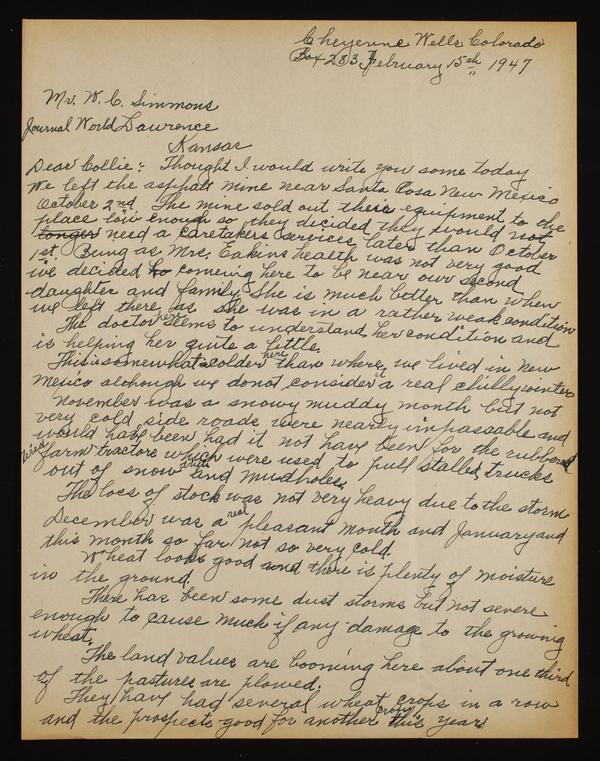 Cheyenne Wells Colorado
Box 283 February 15th 1947
Mr. W. C. Simmons
Journal World Lawrence
Kansas
Dear Collie: Thought I would write you some today
We left the asphalt mine near Santa Rosa New Mexico
October 2nd. The mine sold out their equipment to the
place low enough so they decided they would not
longer need a caretakers services later than October
1st. Being as Mrs. Eakins health was not very good
we decided to comeing here to be near our second
daughter and family. She is much better than when
we left there as she was in a rather weak condition
The doctor here seems to understand her condition and
is helping her quite a little.
This is somewhat colder here than where we lived in New
Mexico although we do not consider a real chilly winter
November was a snowy muddy month but not
very cold, side roads were nearly inpassable and
would have been had it not have been for the rubber
tired farm tractors which were used to pull stalled trucks
out of snow drifts and mudholes.
The loss of stock was not very heavy due to the storm
December was a real pleasant month and January and
this month so far not so very cold.
Wheat looks good and there is plenty of moisture
in the ground.
There has been some dust storms but not severe
enough to cause much if any damage to the growing
wheat.
The land values are booming here about one third
of the pastures are plowed.
They have had several wheat crops in a row
and the prospects good for another crop this year